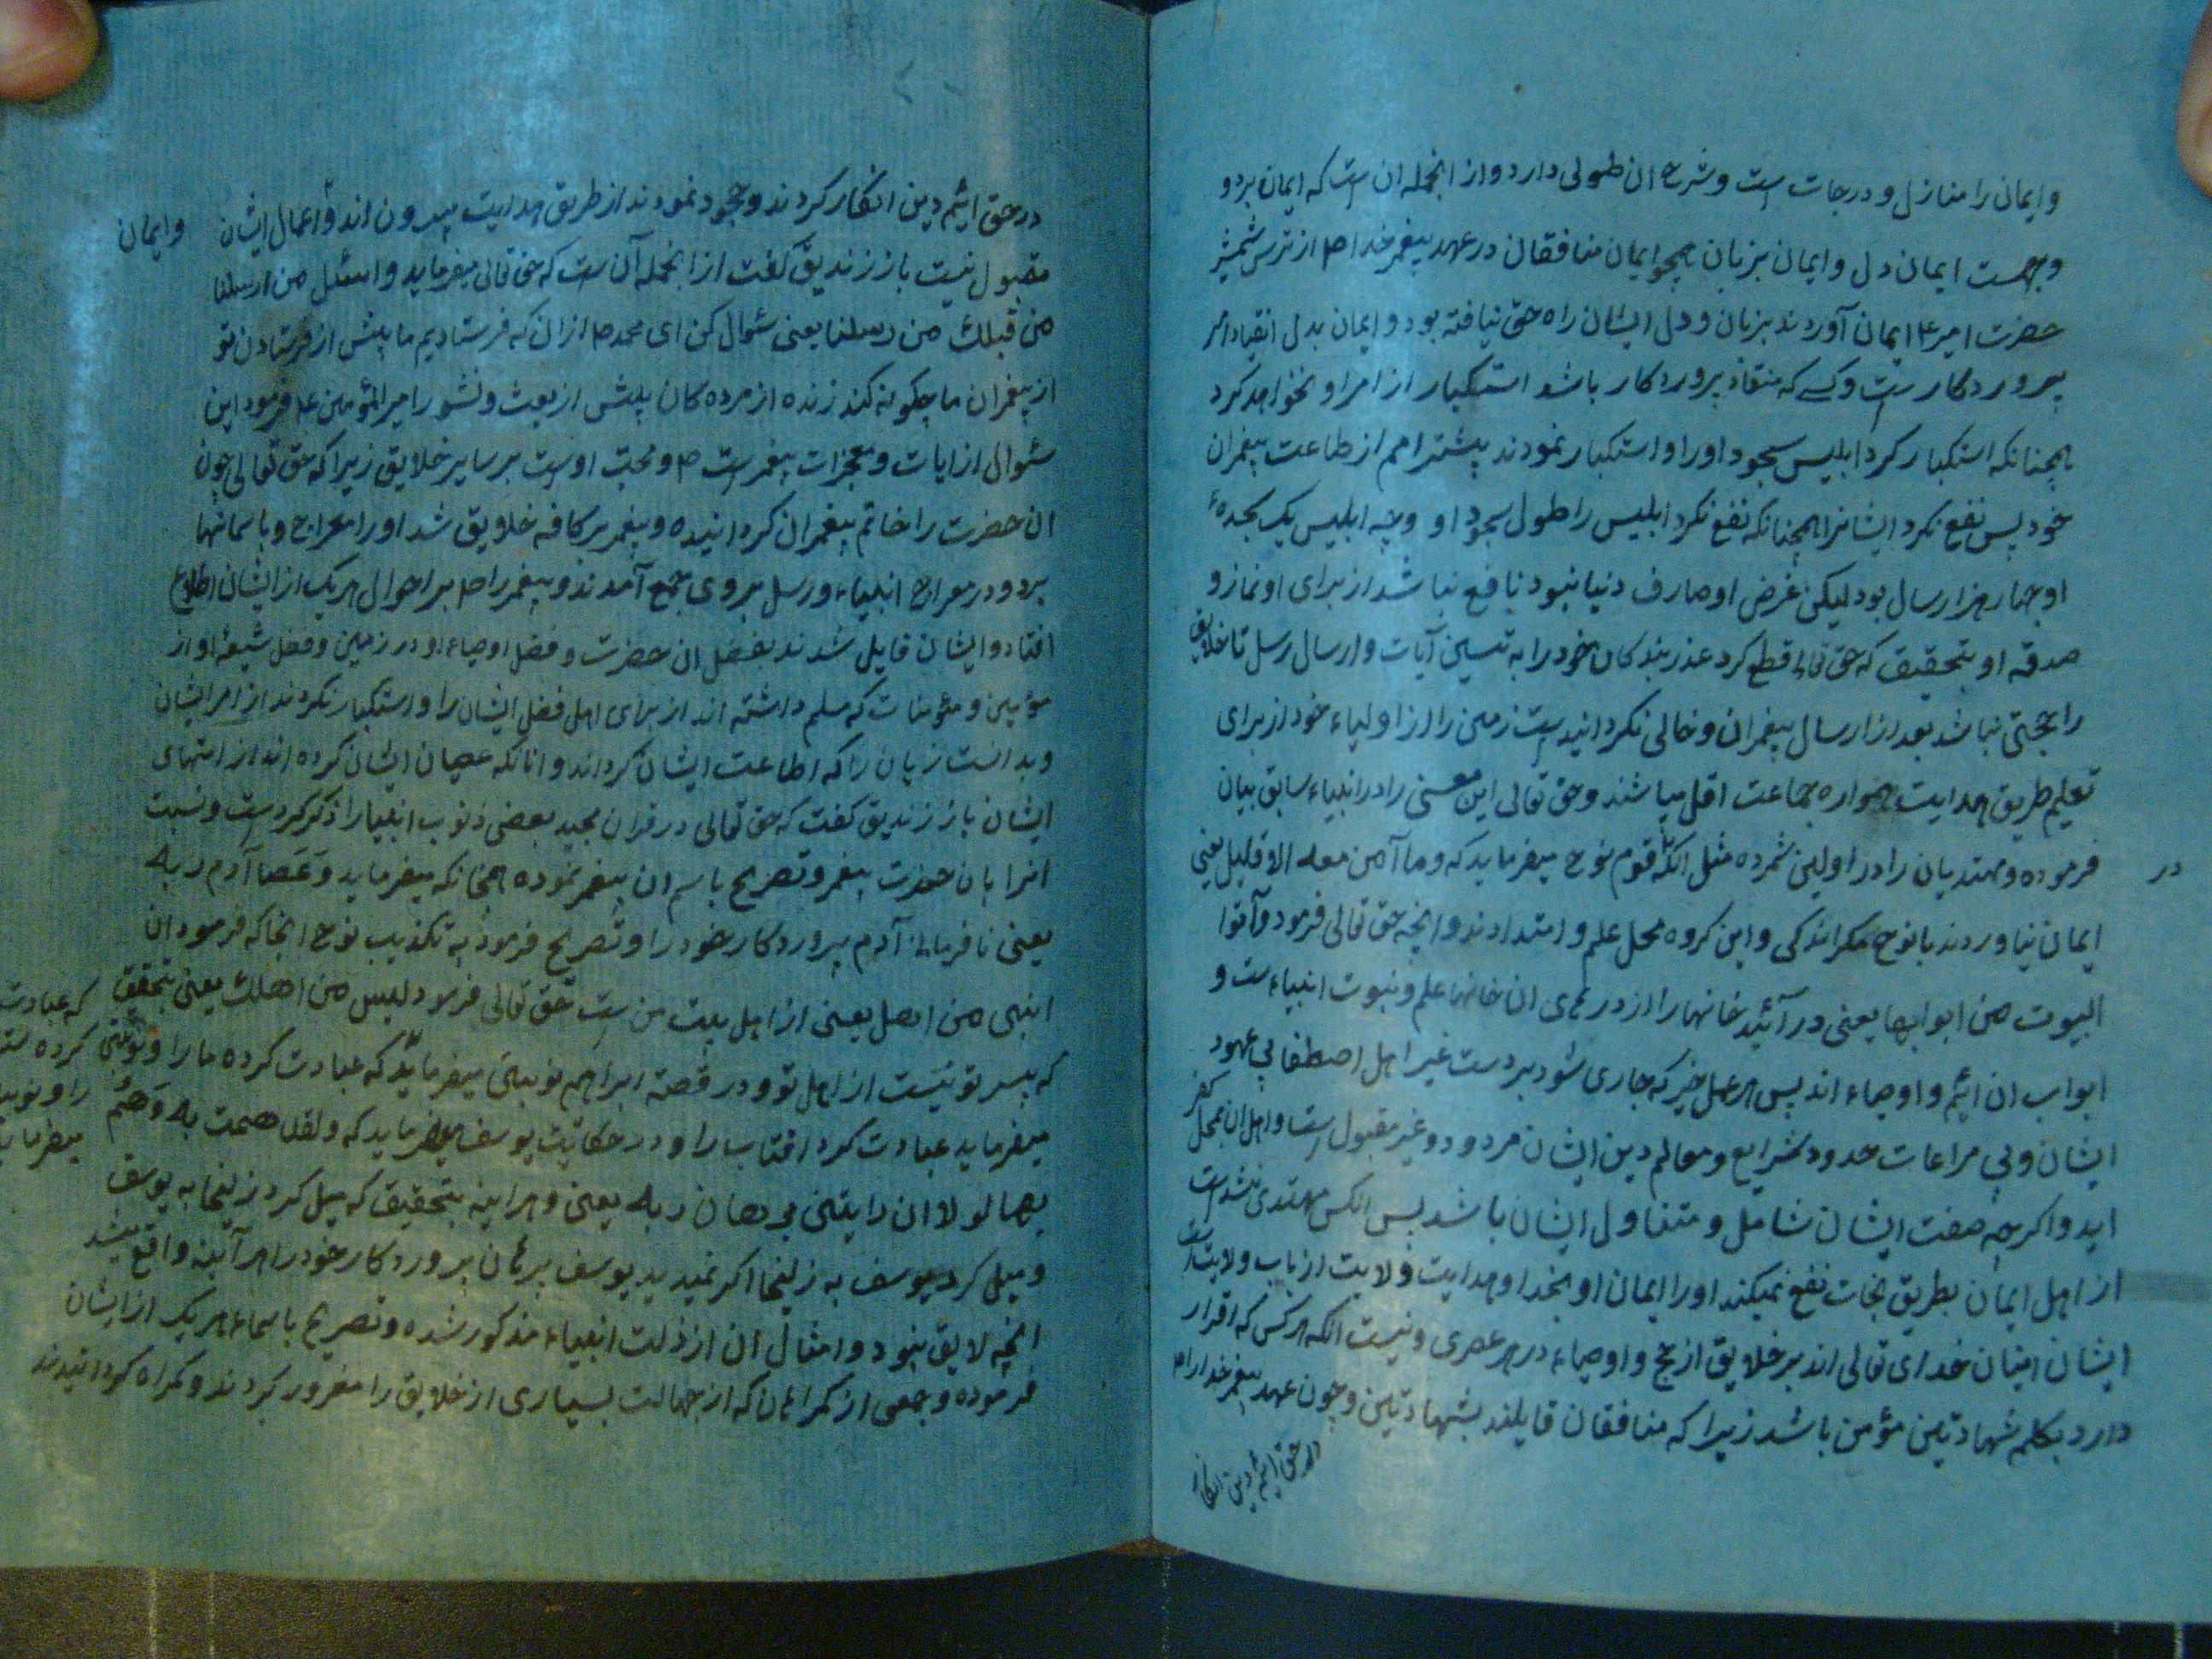 وایمان را منازل و درجات است و شرح ان طولی دارد و از انجمله ان است که ایمان بر دو
وجهست ایمان دل و ایمان بزبان همچو ایمان منافقان در عهد پیغمبر خدا ص از ترس شمشیر
حضرت امیر ع ایمان آوردند بزبان و دل ایشان راه حق نیافته بود و ایمان بدل انقیاد امر
پروردگار است و کسی که منقاد پروردکار باشد استکبار از امر او نخواهد کرد
همچنانکه استکبار کرد ابلیس سجود اورا و استکبار نمودند پیشتر امم از طاعت پیغمبران
خود پس نفع نکرد ایشانرا همچنانکه نفع نکرد ابلیس را طول سجود او وچه ابلیس یک سجدهٔ
او چهار هزار سال بود لیکن غرض او صارف دنیا نبود نافع نباشد از برای او نماز و
صدقه او بتحقیق که حق تعالی قطع کرد عذر بندکان خود را به تبیین آیات و ارسال رسل تا خلایق
را حجتی نباشد بعد از ارسال پیغمبران و خالی نکردانید است زمین را از اولیاء خود از برای
تعلیم طریق هدایت همواره جماعت اقل میباشند و حق تعالی این معنی را در انبیاء سابق بیان
فرموده و مهتدیان را در اولین شمرده مثل انکه در قوم نوح میفرماید که وما آمن معه الا قلیل یعنی
ایمان نیاوردند با نوح مکر اندکی و این کروه محل علم و اهتدادند و انچه حق تعالی فرمود وآتوا
البیوت من ابوابها یعنی در آئید خانها را از درهای ان خانها علم و نبوت انبیاءست و
ابواب ان ائمه و اوصیاء اند پس هر عمل خیر که جاری شود بر دست غیر اهل اصطفا بی عهود
ایشان و بی مراعات حدود شرایع و معالم دین ایشان مردود و غیر مقبول است و اهل ان بمحل کفر
اید و اکرچه صفت ایشان شامل و متناول ایشان باشد پس انکس مهتدی نشد است
از اهل ایمان بطریق نجات نفع نمیکند اورا ایمان او بخدا و هدایت ولایت از باب ولایت است
ایشان امینان خدای تعالی اند بر خلایق از حج و اوصیاء در هر عصری و نیست انکه هر کس که اقرار
دارد بکلمه شهادتین مؤمن باشد زیرا که منافقان قایلند بشهادتین و چون عهد پیغمبر خدا را ص
در حق ائمه دین انکار
در حق ائمه دین انکار کردند و جحود نمودند از طریق هدایت بیرون اند و اعمال ایشان و ایمان
مقبول نیست باز زندیق کفت از انجمله آن است که حق تعالی میفرماید و اسئل من ارسلنا
من قبلک من رسلنا یعنی سئوال کن ای محمد ص از ان که فرستادیم ما پیش از فرستادن تو
از پیغمبران ما چکونه کند زنده از مرده کان پیش از بعث و نشور امیر المؤمنین ع فرمود این
سئوال از ایات و معجزات پیغمبر است ص و حجت اوست بر سایر خلایق زیرا که حق تعالی چون
ان حضرت را خاتم پیغمبران کردانیده و پیغمبر بر کافه خلایق شد اورا بمعراج و باسمانها
برد و در معراج انبیاء و رسل بروی جمع آمدند و پیغمبر را ص بر احوال هر یک از ایشان اطلاع
افتاد و ایشان قایل شدند بفضل ان حضرت و فضل اوصیاء او در زمین و فضل شیعهٔ او از
مؤمنین و مؤمنات که مسلم داشته اند از برای اهل فضل ایشان را و استکبار نکردند از امر ایشان
و بدانست زیان را که اطاعت ایشان کردند و انانکه عصیان ایشان کرده اند از امتهای
ایشان باز زندیق کفت که حق تعالی در قران مجید بعضی ذنوب انبیا را ذکر کردست و نسبت
انرا بان حضرت پیغمبر و تصریح باسم ان پیغمبر نموده همچنانکه میفرماید وَعَصا آدم ربه
یعنی نافرمانی آدم پروردکار خود را و تصریح فرمود به تکذیب نوح انجا که فرمود ان
ابنی من اهلی یعنی از اهل بیت من است حق تعالی فرمود لیس من اهلک یعنی بتحقیق
که پسر تو نیست از اهل تو و در قصه ابراهیم میفرماید که عبادت کرده ما را و نوبتی
میفرماید عبادت کرد افتاب را و در حکایت یوسف میفرماید که ولقد همت به وَهَمَّ
بها لولا ان رای برهان ربه یعنی و هراینه بتحقیق که میل کرد زلیخا به یوسف
و میل کرد یوسف به زلیخا اکر نمیدید یوسف برهان پروردکار خود را هر آینه واقع میشد
انچه لایق نبود و امثال ان از ذلت انبیاء مذکور شده و تصریح باسماء هر یک از ایشان
فرموده و جمعی از کمراهان که از جهالت بسیاری از خلایق را مغرور کردند و کمراه کردانیدند